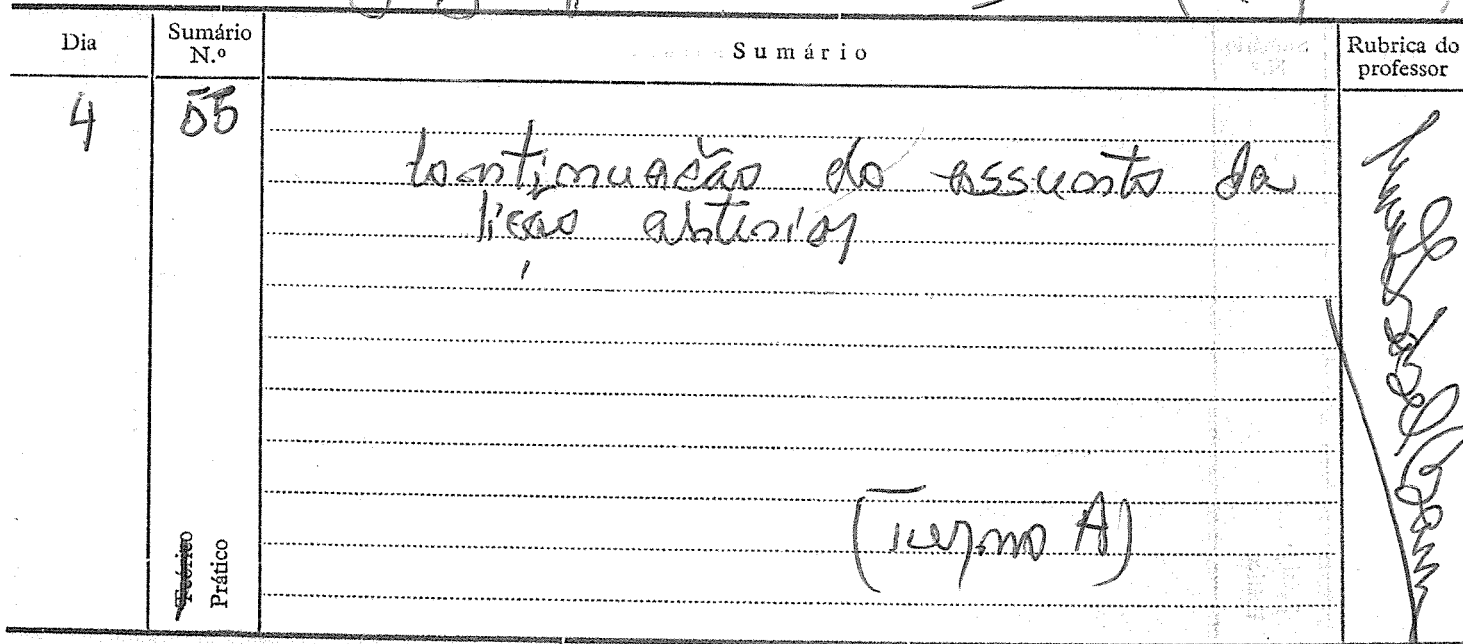 Dia
Sumário
N.º
Sumário
Rubrica do
professor
4
55
Continuação do assunto da
lição anterior
(Turma A)
Teórico
Prático